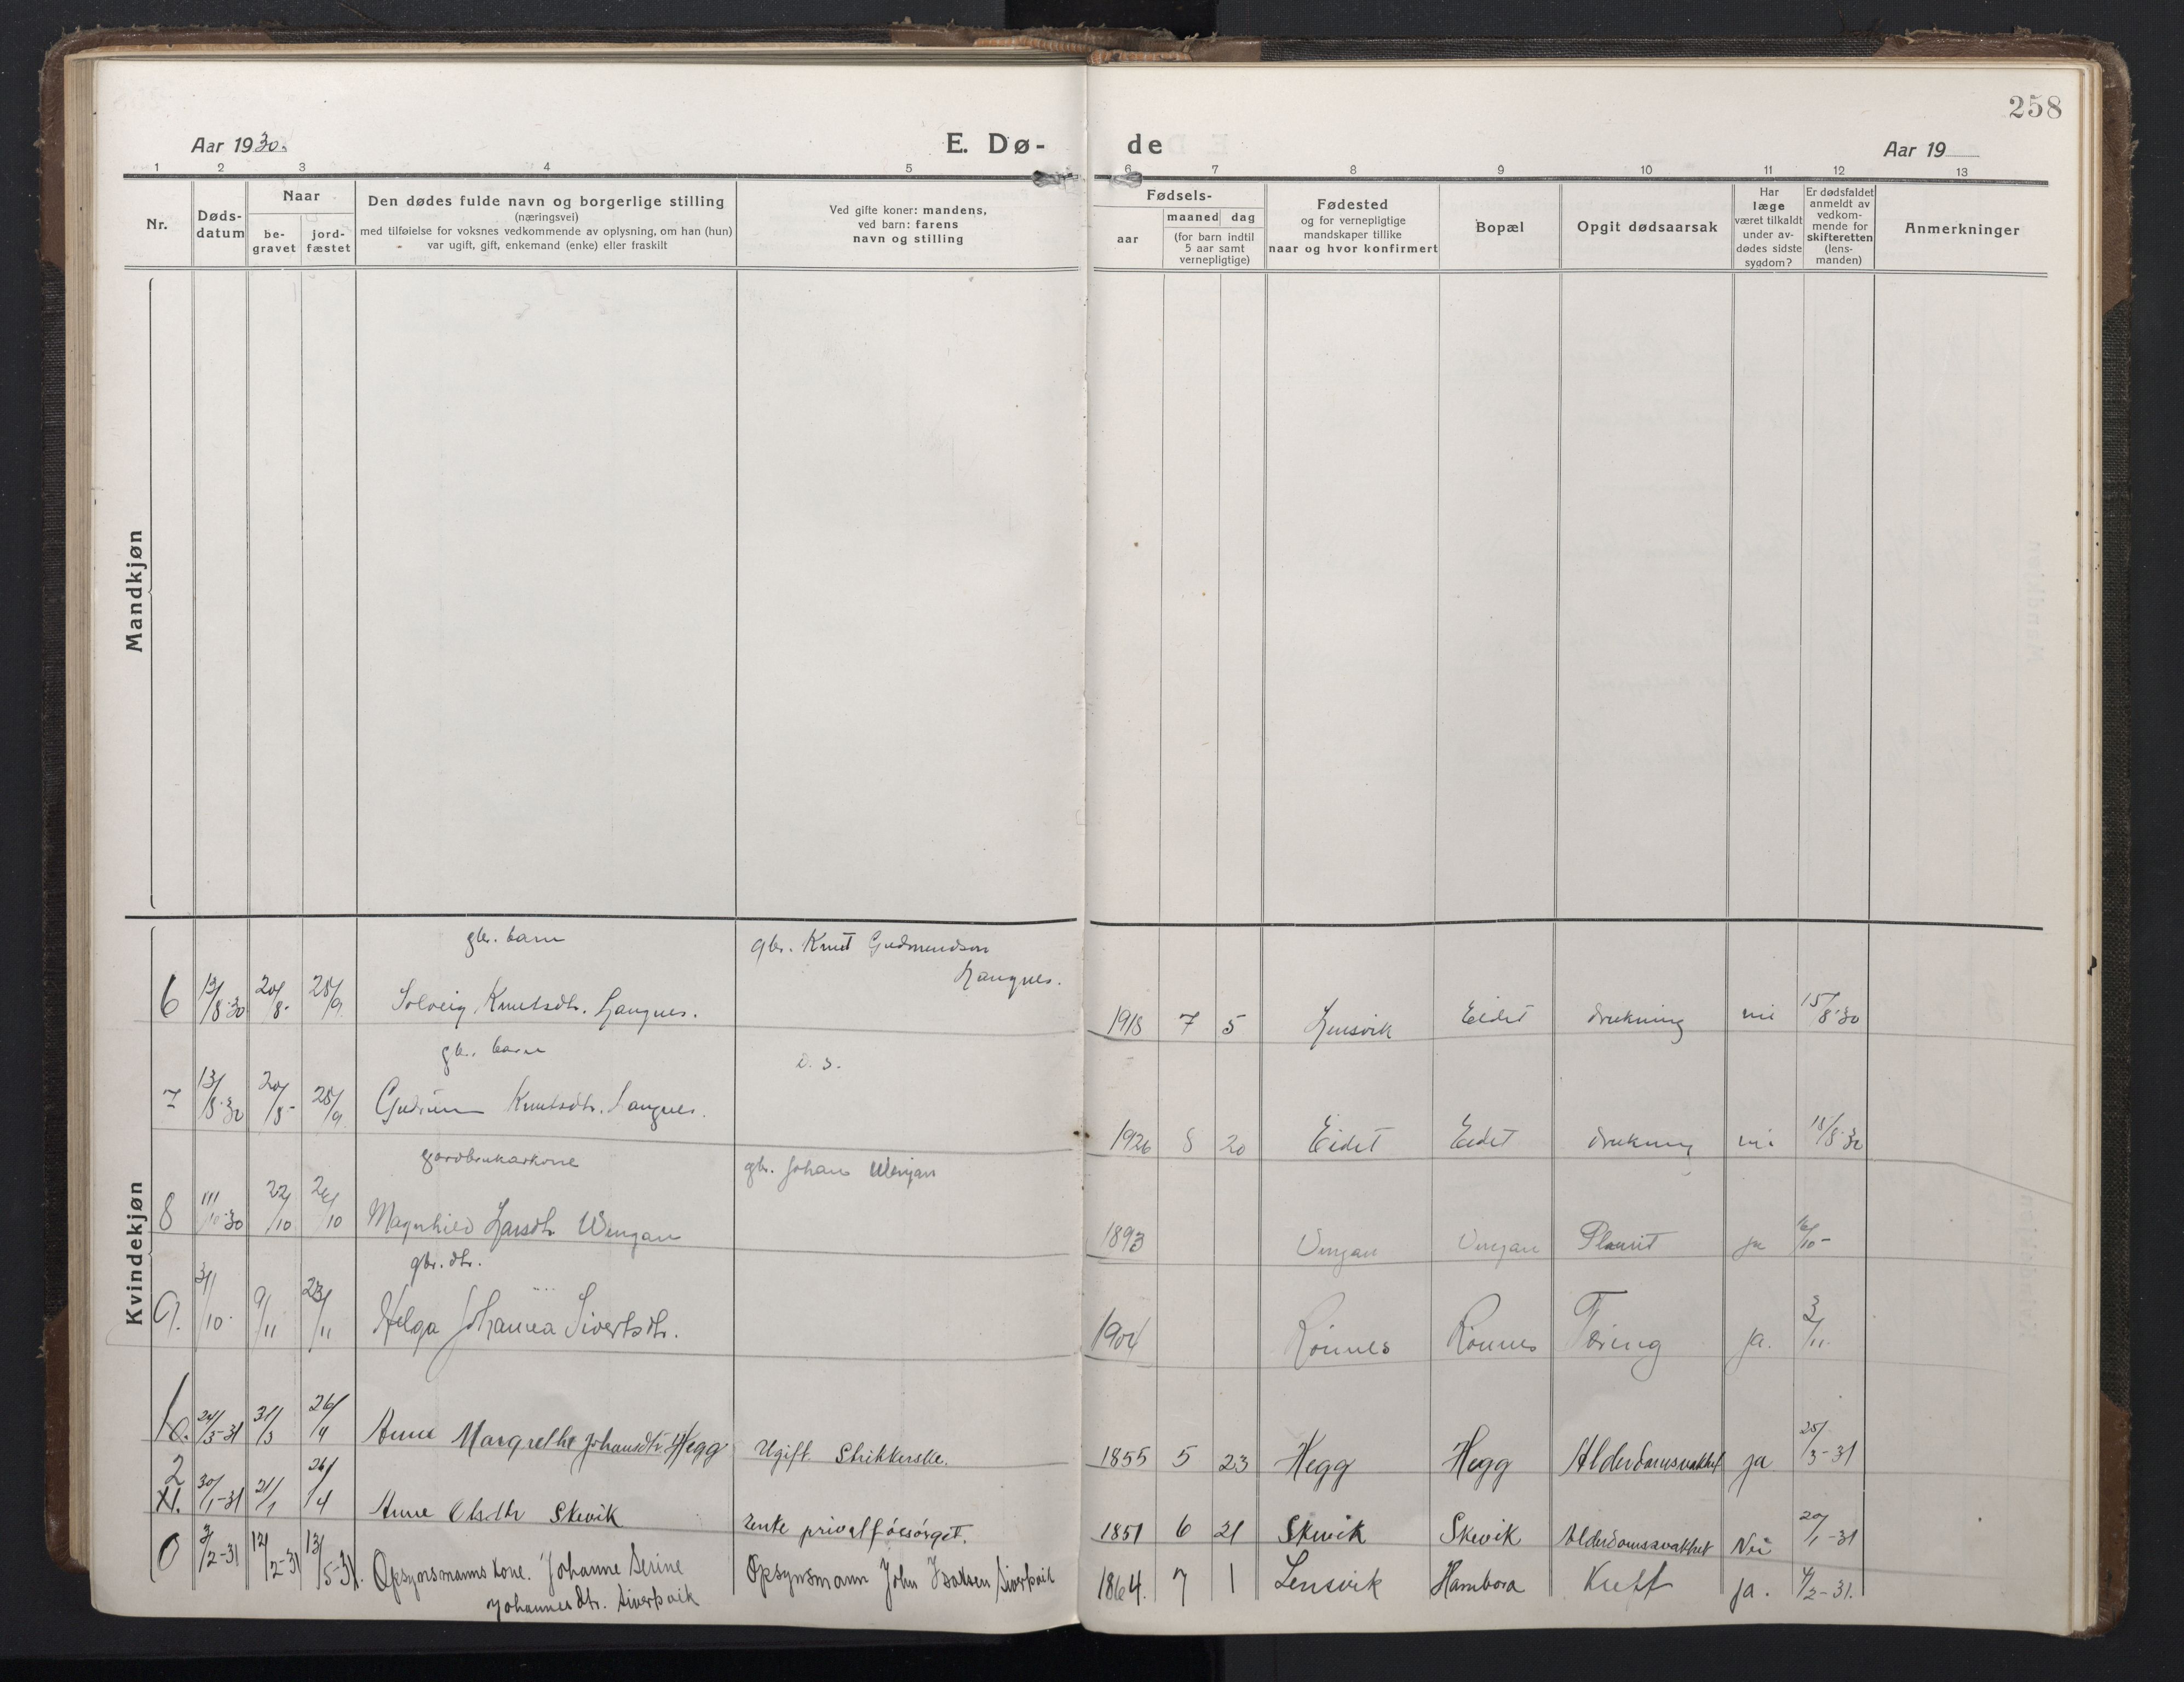 258
Aar 1930. E. Dø- de Aar 19
1 2 3 4 5 6 7 8 9 10 11 12 13
Nr.
Døds-
datum
Naar
be-
gravet
jord-
fæstet
Den dødes fulde navn og borgerlige stilling
(næringsvei)
med tilføielse for voksnes vedkommende av oplysning, om han (hun)
var ugift, gift, enkemand (enke) eller fraskilt
Ved gifte koner: mandens,
ved barn: farens
navn og stilling
Fødsels-
aar
maaned dag
(for barn indtil
5 aar samt
vernepligtige)
Fødested
og for vernepligtige
mandskaper tillike
naar og hvor konfirmert
Bopæl
Opgit dødsaarsak
Har
læge
været tilkaldt
under av-
dødes sidste
sygdom?
Er dødsfaldet
anmeldt av
vedkom-
mende for
skifteretten
(lens-
manden)
Anmerkninger
Mandkjøn
Kvindekjøn
gbr. barn gbr. Knut Gudmundson
Langnes.
6 13/8-30 20/8- 28/9 Solveig Knutsdtr. Langnes. 1918 7 5 Lensvik Eidet drukning nei 15/8-30
gbr. barn D. s.
7 13/8-30 20/8- 28/9 Gudrun Knutsdtr. Langnes. 1926 8 20 Eidet Eidet drukning nei 15/8-30
gardbrukarkone gbr. Johan Wingan
8 11/10-30 22/10 26/10 Magnhild Larsdtr Wingan 1893 Vingan Vingan Pleurit ja 16/10-
gbr. dtr.
9. 31/10- 9/11 23/11 Helga Johanna Sivertsdtr. 1904 Rönnes Rönnes Tæring ja. 3/11-
10. 24/3-31 31/3 26/4 Anne Margrethe Johansdtr. Hegg Ugift Strikkerske. 1855 5 23 Hegg Hegg Alderdomssvakhet ja 25/3-31
2
XI. 21/1 26/4 Anne Olsdtr Skevik Enke privatforsörget. 1851 6 21 Skevik Skevik Alderdomssvakhet Nei 20/1-31
0 3/2-31 12/2-31 13/5-31. Opsynsmanns kone. Johanne Serine Opsynsmann John Isaksen Siverþvik 1864. 7 1 Lensvik Hambora Kreft ja. 4/2-31.
Johannesdtr. Siverþvik